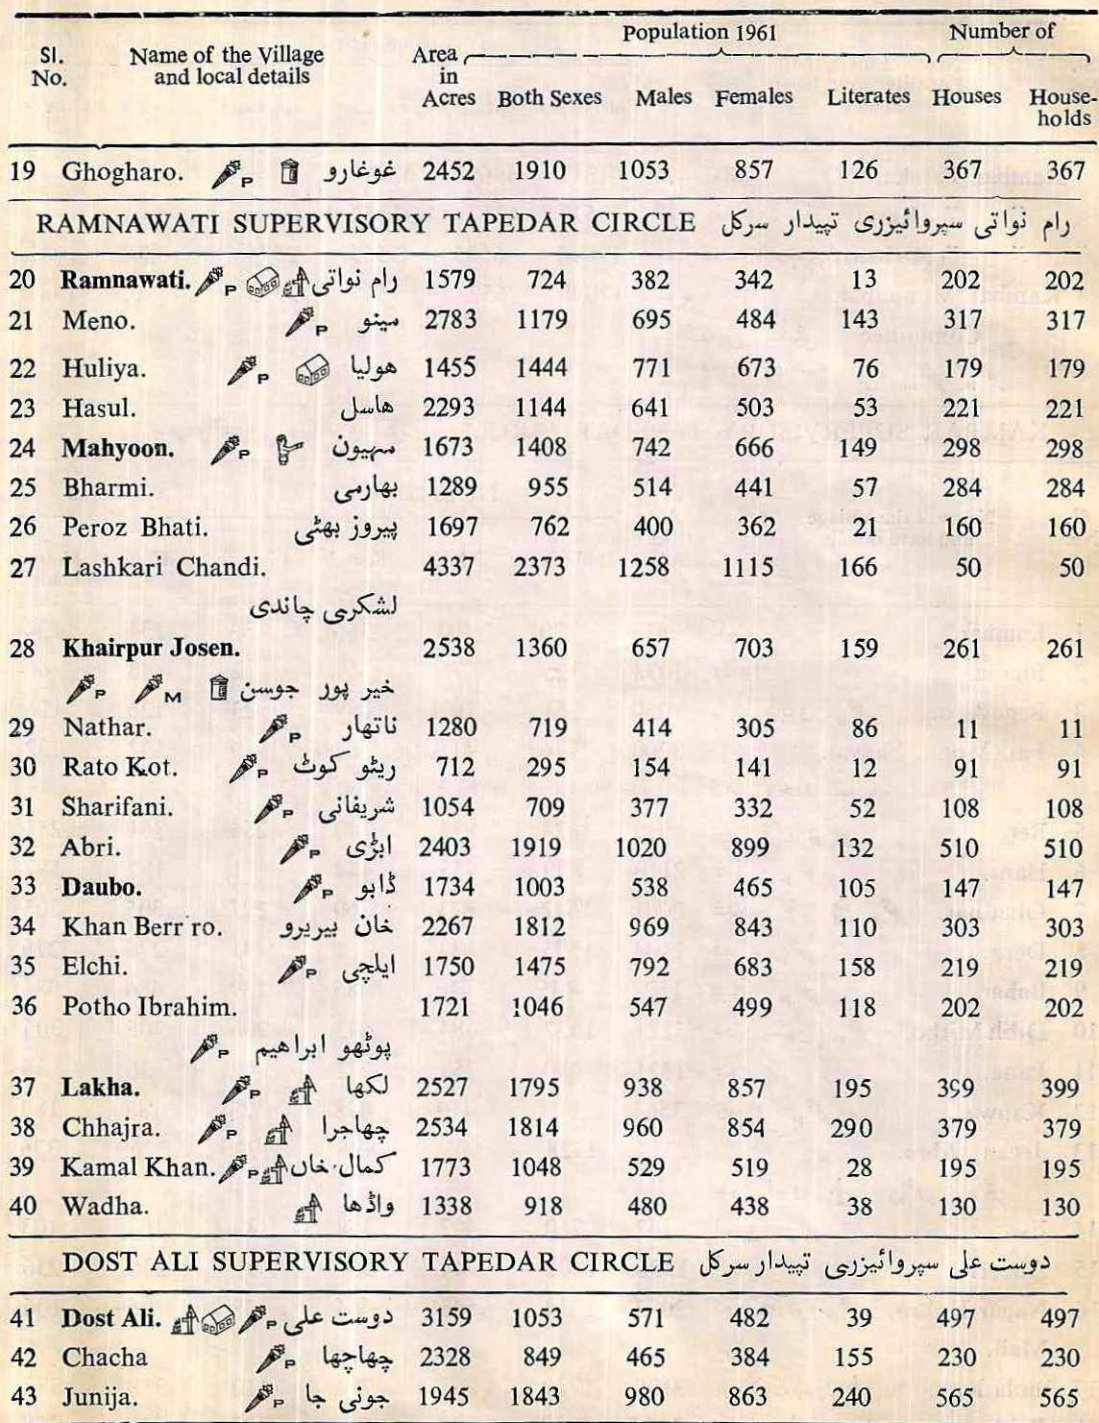 Population 1961 Number of
Sl. Name of the Village Area
No. and local details in
Acres Both Sexes Males Females Literates Houses House-
holds
19 Ghogharo. P غوغارو 2452 1910 1053 857 126 367 367
RAMNAWATI SUPERVISORY TAPEDAR CIRCLE رام نواتی سپروائیزری تپیدار سرکل
20 Ramnawati. P رام نواتی 1579 724 382 342 13 202 202
21 Meno. P مینو 2783 1179 695 484 143 317 317
22 Huliya. P ھولیا 1455 1444 771 673 76 179 179
23 Hasul. ھاسل 2293 1144 641 503 53 221 221
24 Mahyoon. P مہیون 1673 1408 742 666 149 298 298
25 Bharmi. بھارمی 1289 955 514 441 57 284 284
26 Peroz Bhati. پیروز بھٹی 1697 762 400 362 21 160 160
27 Lashkari Chandi. 4337 2373 1258 1115 166 50 50
لشکری چاندی
28 Khairpur Josen. 2538 1360 657 703 159 261 261
P M خیر پور جوسن
29 Nathar. P ناتھار 1280 719 414 305 86 11 11
30 Rato Kot. P ریٹو کوٹ 712 295 154 141 12 91 91
31 Sharifani. P شریفانی 1054 709 377 332 52 108 108
32 Abri. P ابڑی 2403 1919 1020 899 132 510 510
33 Daubo. P ڈابو 1734 1003 538 465 105 147 147
34 Khan Berr ro. خان بیریرو 2267 1812 969 843 110 303 303
35 Elchi. P ایلچی 1750 1475 792 683 158 219 219
36 Potho Ibrahim. 1721 1046 547 499 118 202 202
P پوٹھو ابراھیم
37 Lakha. P لکھا 2527 1795 938 857 195 399 399
38 Chhajra. P چھاجرا 2534 1814 960 854 290 379 379
39 Kamal Khan. P کمال خاں 1773 1048 529 519 28 195 195
40 Wadha. واڈھا 1338 918 480 438 38 130 130
DOST ALI SUPERVISORY TAPEDAR CIRCLE دوست علی سپروائیزری تپیدار سرکل
41 Dost Ali. P دوست علی 3159 1053 571 482 39 497 497
42 Chacha P چھاچھا 2328 849 465 384 155 230 230
43 Junija. P جونی جا 1945 1843 980 863 240 565 565